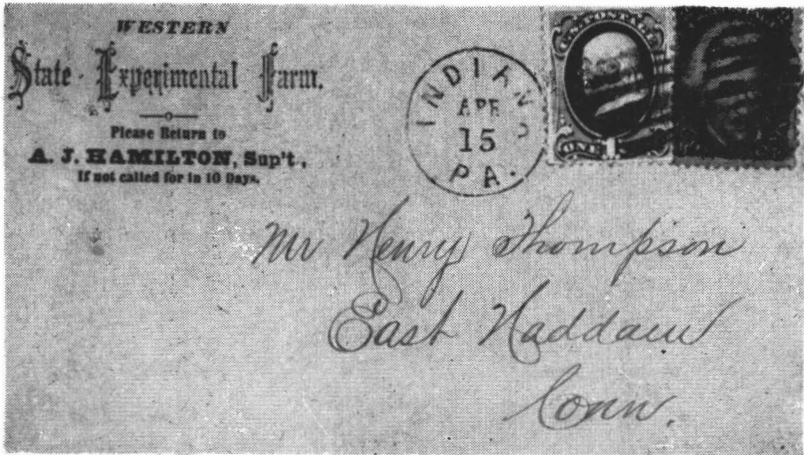 WESTERN
State Experimental Farm.
Please Return to
A. J. HAMILTON, Sup't,
If not called for in 10 Days.
INDIANA
APR
15
PA.
Mr Henry Thompson
East Haddam
Conn.